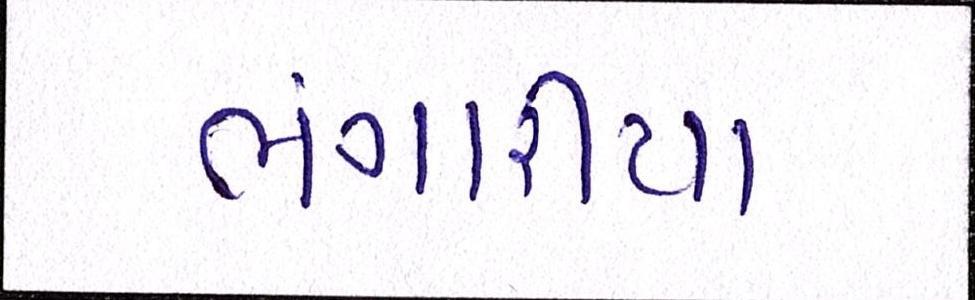 ભંગારીયા